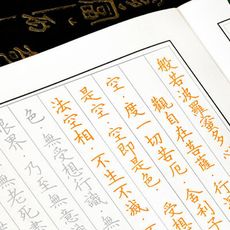 般若波羅蜜多心
觀自在菩薩·
空·度一切苦厄·舍利子
是空·空即是色·受想
法空相·不生不滅·
色·無受想行識·
眼界·乃至無意
老死